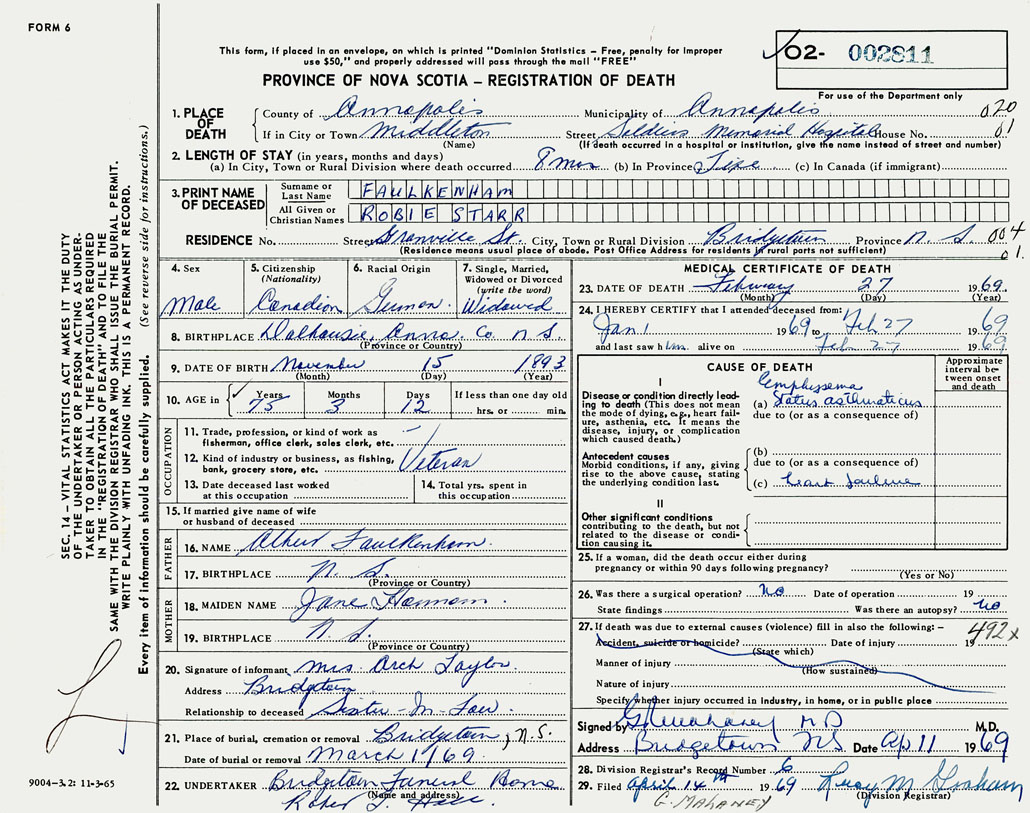 FORM 6
This form, if placed in an envelope, on which is printed "Dominion Statistics – Free, penalty for improper
use $50," and properly addressed will pass through the mail "FREE"
PROVINCE OF NOVA SCOTIA – REGISTRATION OF DEATH
O2- 002811
For use of the Department only
SEC. 14 – VITAL STATISTICS ACT MAKES IT THE DUTY
OF THE UNDERTAKER OR PERSON ACTING AS UNDER-
TAKER TO OBTAIN ALL THE PARTICULARS REQUIRED
IN THE "REGISTRATION OF DEATH" AND TO FILE THE
SAME WITH THE DIVISION REGISTRAR WHO SHALL ISSUE THE BURIAL PERMIT.
WRITE PLAINLY WITH UNFADING INK. THIS IS A PERMANENT RECORD.
Every item of information should be carefully supplied. (See reverse side for instructions.)
1. PLACE OF DEATH
County of Annapolis Municipality of Annapolis 020
If in City or Town Middleton Street Soldiers Memorial Hospital House No. 01
(Name) (If death occurred in a hospital or institution, give the name instead of street and number)
2. LENGTH OF STAY (in years, months and days)
(a) In City, Town or Rural Division where death occurred 8 mos (b) In Province Life (c) In Canada (if immigrant)
3. PRINT NAME OF DECEASED
Surname or Last Name FAULKENHAM
All Given or Christian Names ROBIE STARR
RESIDENCE No. Street Granville St. City, Town or Rural Division Bridgetown Province N. S. 004
(Residence means usual place of abode. Post Office Address for residents of rural parts not sufficient) 01.
4. Sex Male
5. Citizenship (Nationality) Canadian
6. Racial Origin German.
7. Single, Married, Widowed or Divorced (write the word) Widowed
8. BIRTHPLACE Dalhousie, Anna. Co N S.
(Province or Country)
9. DATE OF BIRTH November 15 1893
(Month) (Day) (Year)
10. AGE in Years 75 Months 3 Days 12 If less than one day old hrs. or min.
OCCUPATION
11. Trade, profession, or kind of work as fisherman, office clerk, sales clerk, etc.
12. Kind of industry or business, as fishing, bank, grocery store, etc. Veteran
13. Date deceased last worked at this occupation
14. Total yrs. spent in this occupation
15. If married give name of wife or husband of deceased
FATHER
16. NAME Albert Faulkenham.
17. BIRTHPLACE N. S.
(Province or Country)
MOTHER
18. MAIDEN NAME Jane
19. BIRTHPLACE N. S.
(Province or Country)
20. Signature of informant Mrs. Arch Taylor.
Address Bridgetown
Relationship to deceased Sister-In-Law.
21. Place of burial, cremation or removal Bridgetown, N.S.
Date of burial or removal March 1/69.
22. UNDERTAKER Bridgetown Funeral Home
(Name and address)
MEDICAL CERTIFICATE OF DEATH
23. DATE OF DEATH February 27 1969.
(Month) (Day) (Year)
24. I HEREBY CERTIFY that I attended deceased from:
Jan 1 1969 to Feb 27 1969
and last saw him alive on Feb 27 1969
CAUSE OF DEATH
Approximate interval between onset and death
I
Disease or condition directly leading to death (This does not mean the mode of dying, e.g., heart failure, asthenia, etc. It means the disease, injury, or complication which caused death.)
Emphysema
(a) Status asthmaticus
due to (or as a consequence of)
Antecedent causes
Morbid conditions, if any, giving rise to the above cause, stating the underlying condition last.
(b)
due to (or as a consequence of)
(c) heart failure
II
Other significant conditions contributing to the death, but not related to the disease or condition causing it.
25. If a woman, did the death occur either during pregnancy or within 90 days following pregnancy?
(Yes or No)
26. Was there a surgical operation? No Date of operation 19
State findings Was there an autopsy? No
27. If death was due to external causes (violence) fill in also the following: – 492x
Accident, suicide or homicide? Date of injury 19
(State which)
Manner of injury
(How sustained)
Nature of injury
Specify whether injury occurred in Industry, in home, or in public place
Signed by G. Mahaney M D M.D.
Address Bridgetown NS Date Ap 11 1969
28. Division Registrar's Record Number 6
29. Filed April 14th 1969 Lucy M. Graham
(Division Registrar)
G. MAHANEY
9004-3.2: 11-3-65